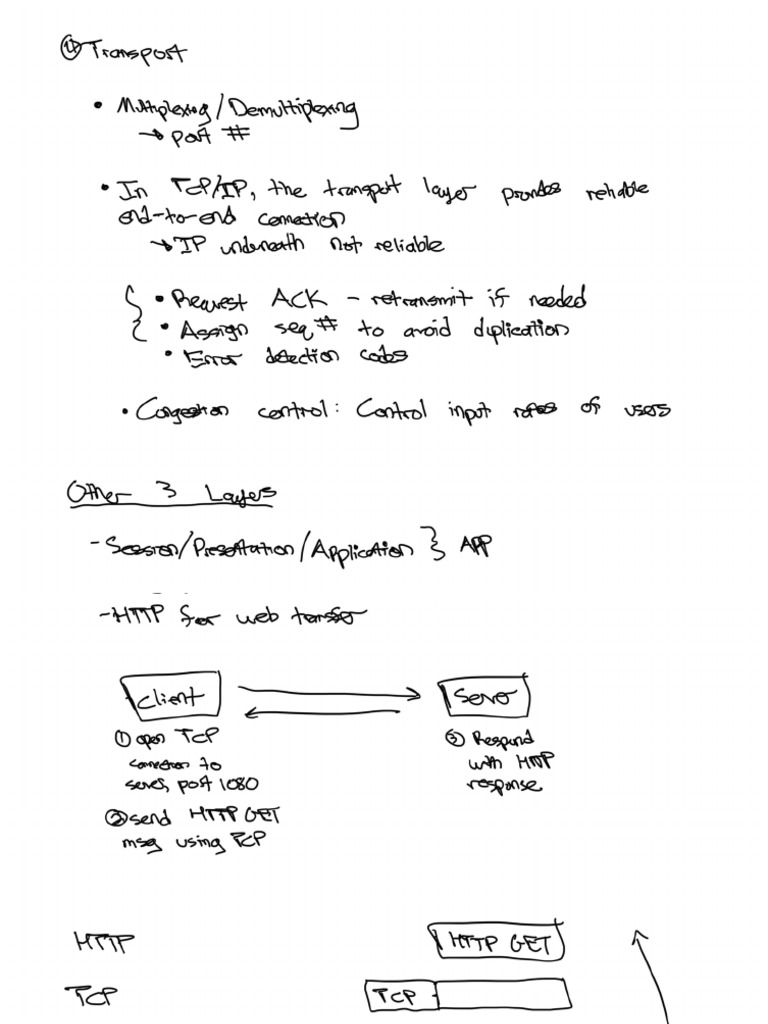 ④ Transport
• Multiplexing/Demultiplexing
→ port #
• In TCP/IP, the transport layer provides reliable
end-to-end connection
→ IP underneath not reliable
• Request ACK - retransmit if needed
• Assign seq # to avoid duplication
• Error detection codes
• Congestion control: Control input rates of users
Other 3 Layers
- Session/Presentation/Application } APP
- HTTP for web transfer
Client
Server
① open TCP
connection to
server, port 1080
② send HTTP GET
msg using TCP
③ Respond
with HTTP
response
HTTP
HTTP GET
TCP
TCP